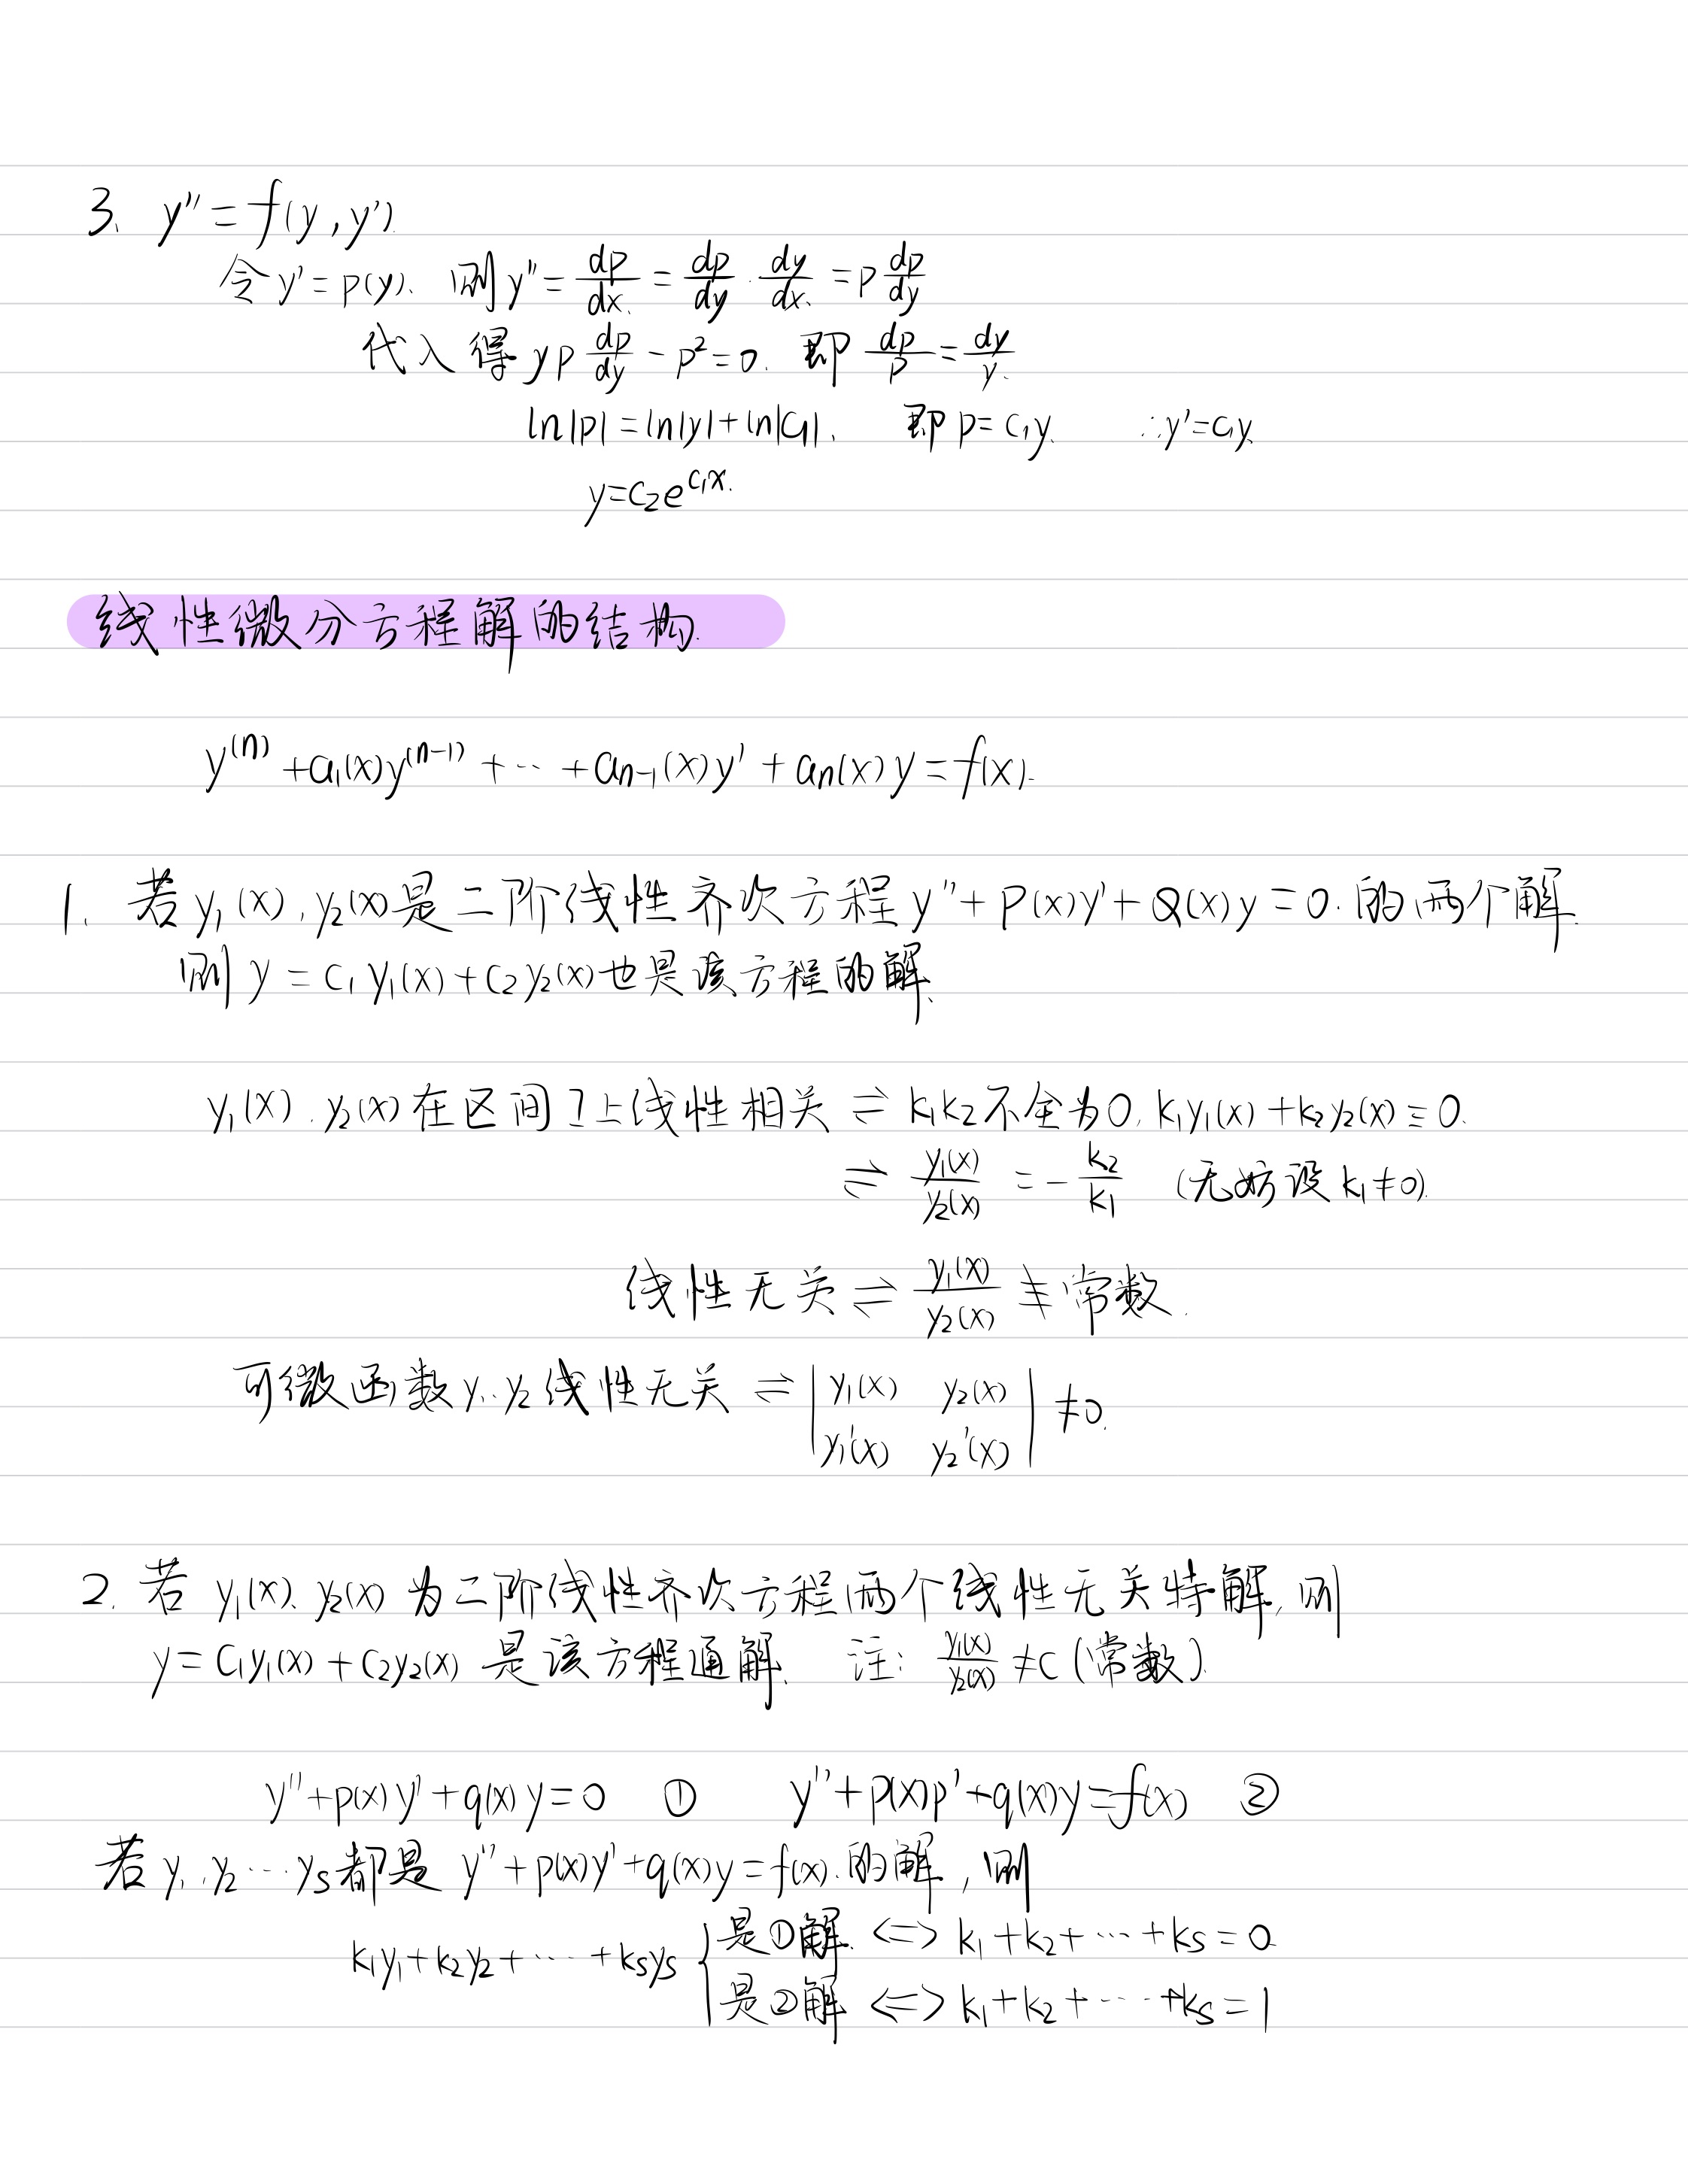 3、 y'' = f(y, y').
令 y' = p(y). 则 y'' = dp/dx = dp/dy · dy/dx = p dp/dy
代入得 yp dp/dy - p² = 0. 即 dp/p = dy/y.
ln|p| = ln|y| + ln|C₁|. 即 p = C₁y. ∴ y' = C₁y.
y = C₂e^{C₁x}.
线性微分方程解的结构.
y⁽ⁿ⁾ + a₁(x)y⁽ⁿ⁻¹⁾ + ⋯ + aₙ₋₁(x)y' + aₙ(x)y = f(x).
1、 若 y₁(x), y₂(x) 是二阶线性齐次方程 y'' + P(x)y' + Q(x)y = 0. 的两个解.
则 y = C₁y₁(x) + C₂y₂(x) 也是该方程的解.
y₁(x). y₂(x) 在区间 I 上线性相关 ⇌ k₁k₂不全为0, k₁y₁(x) + k₂y₂(x) ≡ 0.
⇌ y₁(x)/y₂(x) = - k₂/k₁ (无妨设 k₁≠0).
线性无关 ⇌ y₁(x)/y₂(x) ≢ 常数.
可微函数 y₁. y₂ 线性无关 ⇌ | y₁(x) y₂(x) | ≠0.
| y₁'(x) y₂'(x) |
2. 若 y₁(x). y₂(x) 为二阶线性齐次方程两个线性无关特解, 则
y = C₁y₁(x) + C₂y₂(x) 是该方程通解. 注: y₁(x)/y₂(x) ≠ C (常数).
y'' + p(x)y' + q(x)y = 0 ① y'' + p(x)p' + q(x)y = f(x) ②
若 y₁. y₂ ⋯ yₛ 都是 y'' + p(x)y' + q(x)y = f(x). 的解, 则
k₁y₁ + k₂y₂ + ⋯ + kₛyₛ { 是①解. <=> k₁ + k₂ + ⋯ + kₛ = 0
是②解 <=> k₁ + k₂ + ⋯ + kₛ = 1